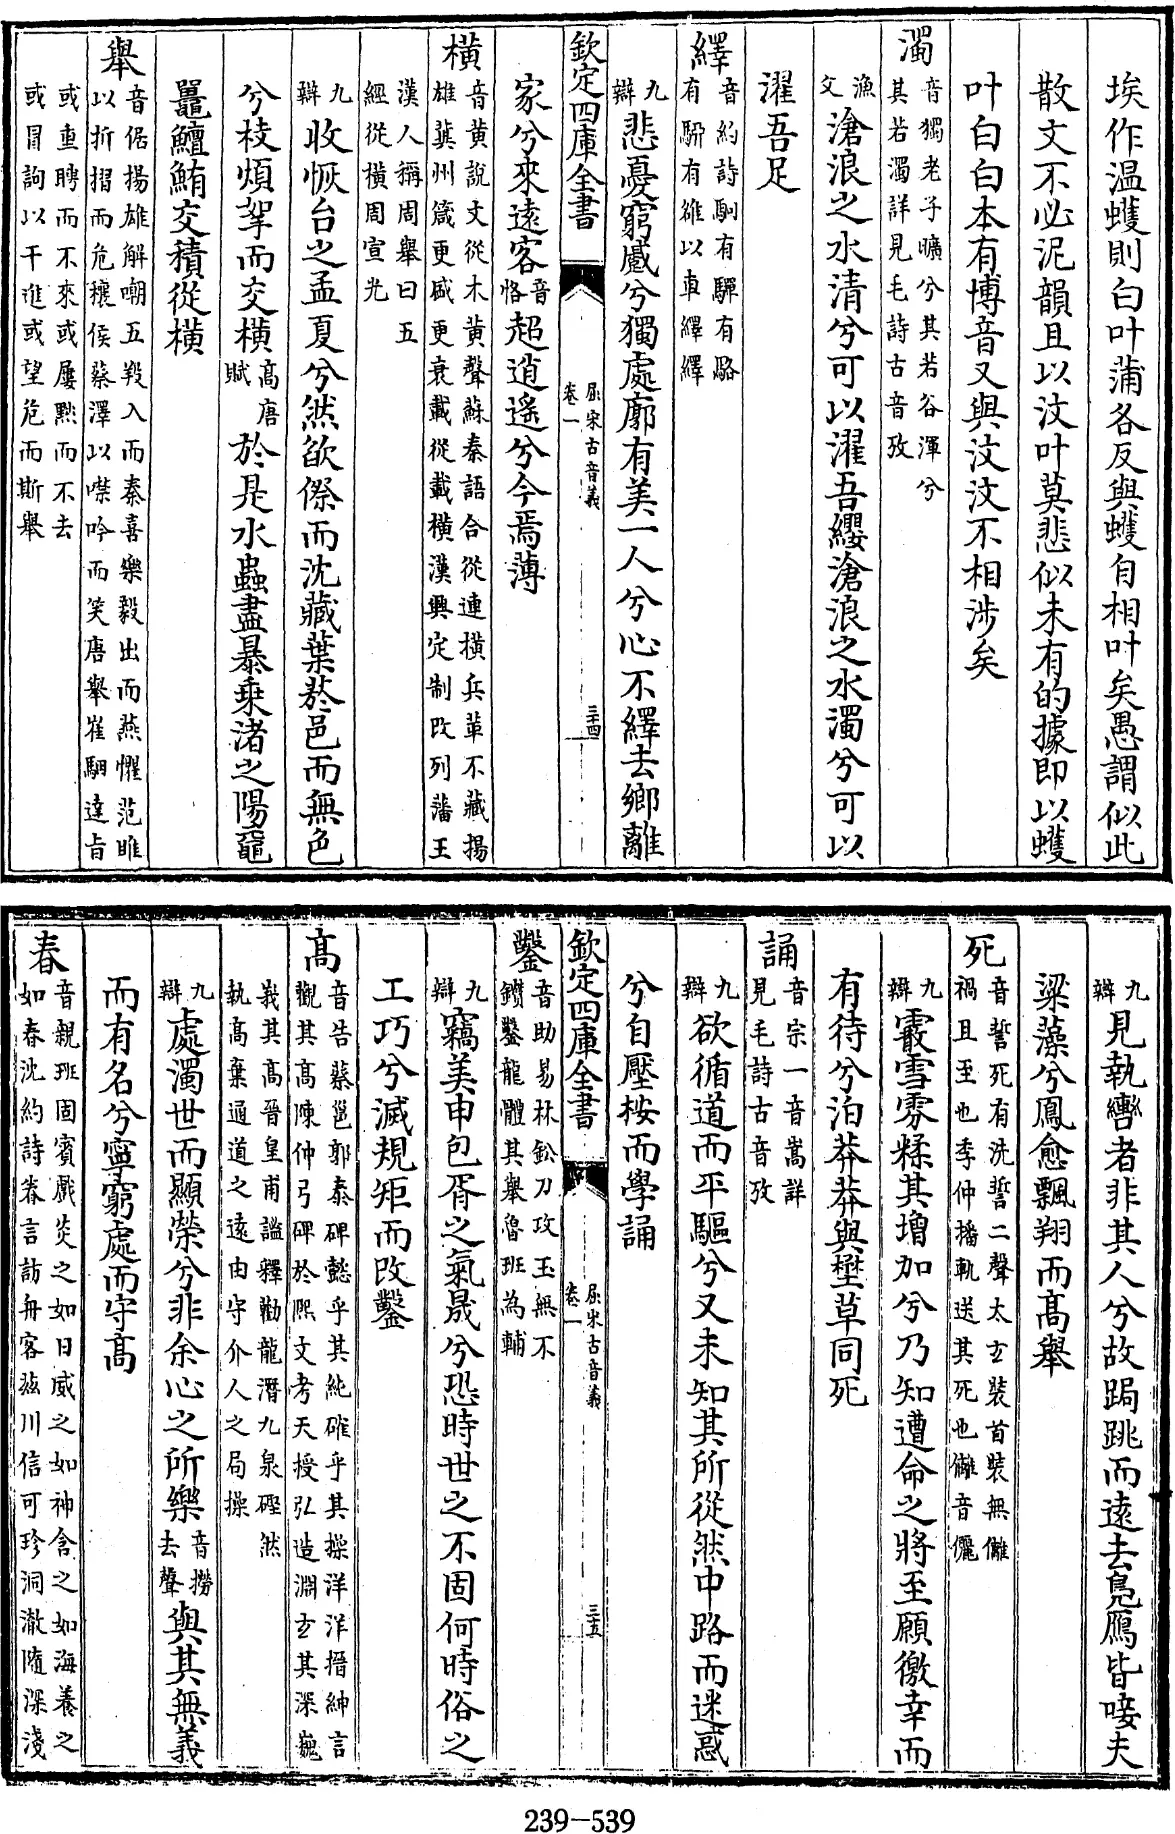 埃作温蠖則白叶蒲各反與蠖自相叶矣愚謂似此
散文不必泥韻且以汶叶莫悲似未有的據即以蠖
叶白白本有博音又與汶汶不相涉矣
濁
音獨老子曠兮其若谷渾兮
其若濁詳見毛詩古音攷
漁
文
滄浪之水清兮可以濯吾纓滄浪之水濁兮可以
濯吾足
繹
音約詩駉有驒有駱
有駵有雒以車繹繹
九
辯
悲憂窮慼兮獨處廓有美一人兮心不繹去鄉離
欽定四庫全書
屈宋古音義
卷一
三十四
家兮來遠客
音
恪
超逍遙兮今焉薄
橫
音黃說文從木黃聲蘇秦語合從連橫兵革不藏揚
雄冀州箴更盛更衰載從載橫漢興定制改列藩王
漢人稱周舉曰五
經從橫周宣光
九
辯
收恢台之孟夏兮然欿傺而沈藏葉菸邑而無色
兮枝煩挐而交橫
高唐
賦
於是水蟲盡暴乗渚之陽黿
鼉鱣鮪交積從橫
舉
音倨揚雄解嘲五羖入而秦喜樂毅出而燕懼范雎
以折摺而危穰侯蔡澤以噤吟而笑唐舉崔駰達旨
或重聘而不來或屢黜而不去
或冒詢以干進或望危而斯舉
九
辯
見執轡者非其人兮故跼跳而遠去鳧鴈皆唼夫
梁藻兮鳳愈飄翔而高舉
死
音誓死有洗誓二聲太玄裝首裝無儷
禍且至也季仲播軌送其死也儷音儷
九
辯
霰雪雰糅其增加兮乃知遭命之將至願徼幸而
有待兮泊莽莽與壄草同死
誦
音宗一音嵩詳
見毛詩古音攷
九
辯
欲循道而平驅兮又未知其所從然中路而迷惑
兮自壓桉而學誦
欽定四庫全書
屈宋古音義
卷一
三十五
鑿
音助易林鉛刀攻玉無不
鑽鑿龍體其舉魯班為輔
九
辯
竊美申包胥之氣晟兮恐時世之不固何時俗之
工巧兮滅規矩而改鑿
高
音告蔡邕郭泰碑懿乎其純確乎其操洋洋搢紳言
觀其高陳仲弓碑於熙文考天授弘造淵玄其深巍
峩其高晉皇甫謐釋勸龍潛九泉硜然
執高棄通道之遠由守介人之局操
九
辯
處濁世而顯榮兮非余心之所樂
音撈
去聲
與其無義
而有名兮寧窮處而守高
春
音親班固賓戲炎之如日威之如神含之如海養之
如春沈約詩眷言訪舟客茲川信可珍洞澈隨深淺
239-539